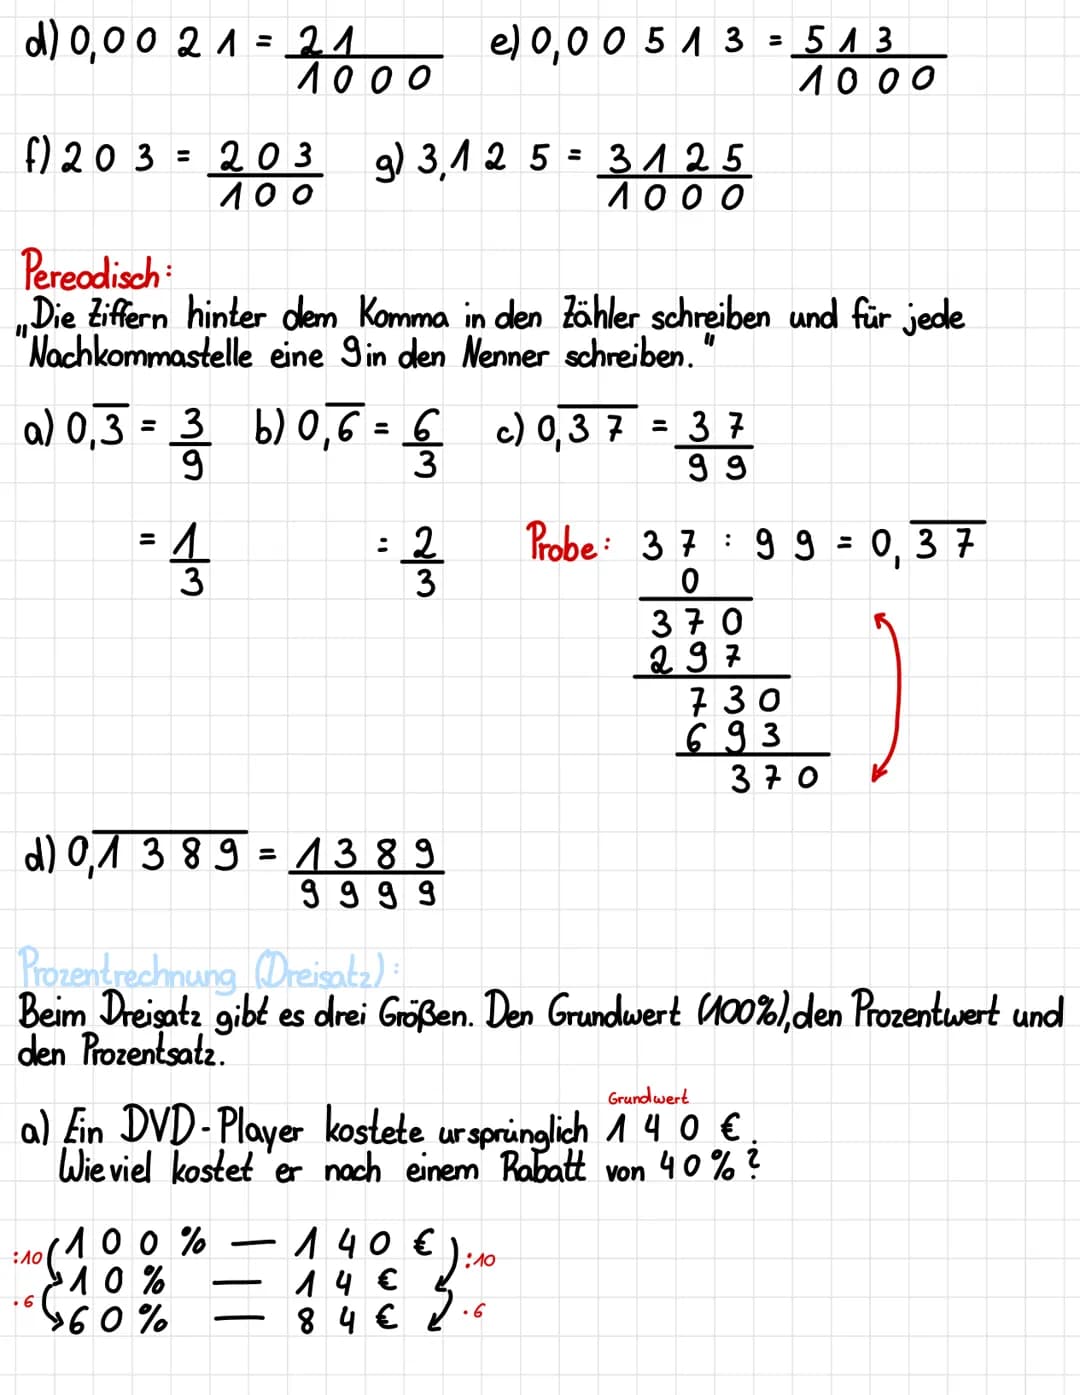 d) 0,0021 = 21/1000 e) 0,00513 = 513/1000
f) 203 = 203/100 g) 3,125 = 3125/1000
Pereodisch:
„Die Ziffern hinter dem Komma in den Zähler schreiben und für jede
Nachkommastelle eine 9 in den Nenner schreiben."
a) 0,3̅ = 3/9 b) 0,6̅ = 6/3 c) 0,3̅7̅ = 37/99
= 1/3 = 2/3 Probe: 37 : 99 = 0,3̅7̅
0
370
297
730
693
370
d) 0,1̅3̅8̅9̅ = 1389/9999
Prozentrechnung (Dreisatz):
Beim Dreisatz gibt es drei Größen. Den Grundwert (100%), den Prozentwert und
den Prozentsatz.
Grundwert
a) Ein DVD-Player kostete ursprünglich 140 €.
Wie viel kostet er nach einem Rabatt von 40%?
:10 100% — 140 € :10
10% — 14 €
·6 60% — 84 € ·6